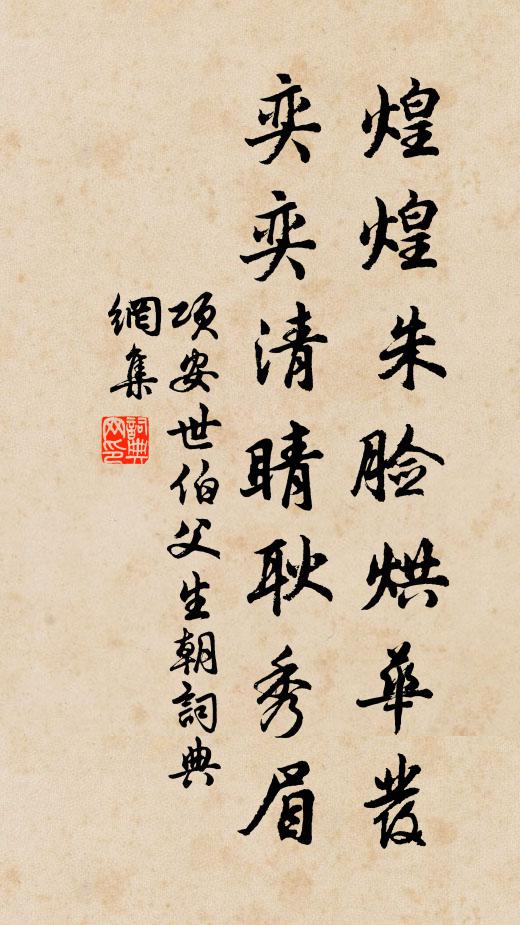 煌煌朱脸烘華發
奕奕清睛耿秀眉
项安世伯父生朝詞典
網集
詞典
网印